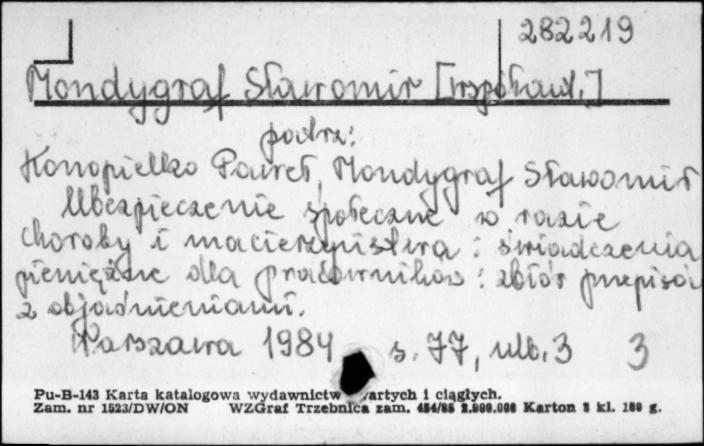 282219
Mondygraf Sławomir [współaut.]
patrz:
Konopielko Paweł, Mondygraf Sławomir
Ubezpieczenie społeczne w razie
choroby i macierzyństwa : świadczenia
pieniężne dla pracowników : zbiór przepisów
z objaśnieniami.
Warszawa 1984 s. 77, ulb. 3 3
Pu-B-143 Karta katalogowa wydawnictw zwartych i ciągłych.
Zam. nr 1523/DW/ON WZGraf Trzebnica zam. 454/85 2.000.000 Karton 3 kl. 180 g.